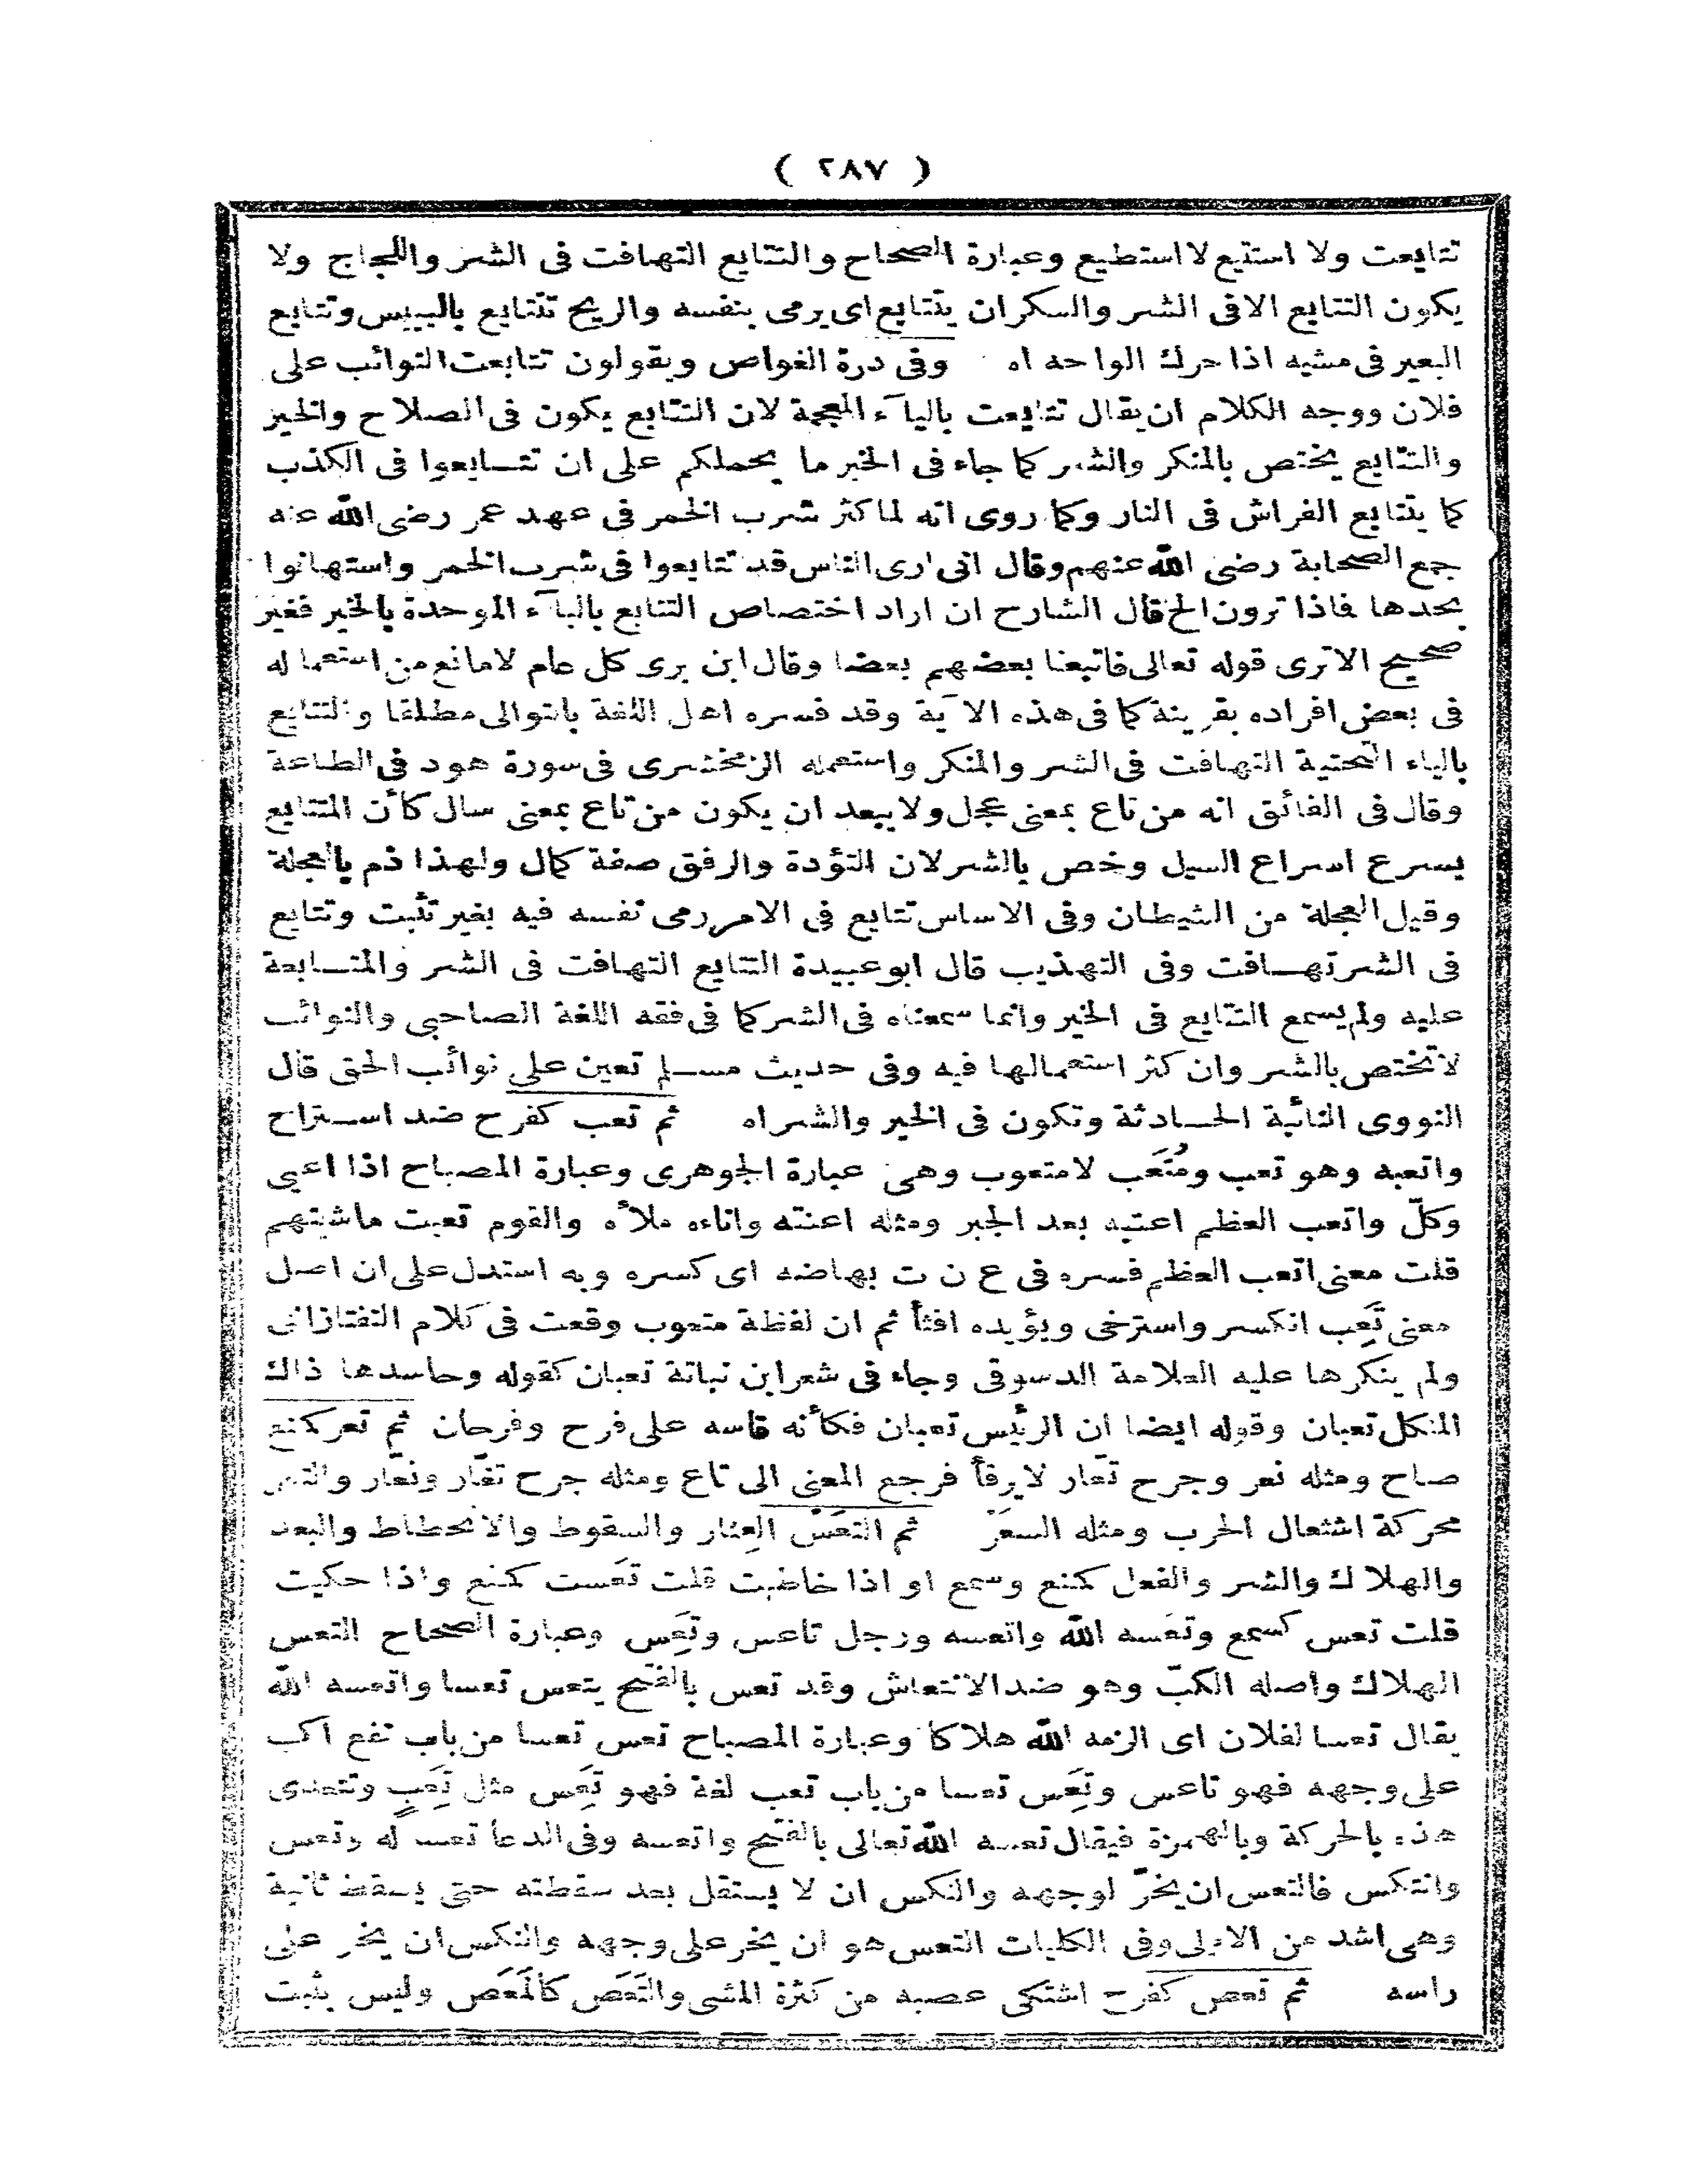 ( ٢٨٧ )
تتايعت ولا استتيع لا استطيع وعبارة الصحاح والتتايع التهافت فى الشر واللجاج ولا
يكون التتايع الا فى الشر والسكران يتتايع اى يرمى بنفسه والريح تتتايع باليبيس وتتايع
البعير فى مشيه اذا حرك الواحه اه وفى درة الغواص ويقولون تتابعت النوائب على
فلان ووجه الكلام ان يقال تتايعت باليآء المعجمة لان التتابع يكون فى الصلاح والخير
والتتايع يختص بالمنكر والشر كما جاء فى الخبر ما يحملكم على ان تتــايعوا فى الكذب
كما يتتايع الفراش فى النار وكما روى انه لما كثر شرب الخمر فى عهد عمر رضى الله عنه
جمع الصحابة رضى الله عنهم وقال انى ارى الناس قد تتايعوا فى شرب الخمر واستهانوا
بحدها فماذا ترون الخ قال الشارح ان اراد اختصاص التتابع بالبآء الموحدة بالخير فغير
صحيح الا ترى قوله تعالى فاتبعنا بعضهم بعضا وقال ابن برى كل عام لا مانع من استعماله
فى بعض افراده بقرينة كما فى هذه الآية وقد فسره اهل اللغة بالتوالى مطلقا والتتايع
بالياء التحتية التهافت فى الشر والمنكر واستعمله الزمخشرى فى سورة هود فى الطاعة
وقال فى الفائق انه من تاع بمعنى عجل ولا يبعد ان يكون من تاع بمعنى سال كأن المتتايع
يسرع اسراع السيل وخص بالشر لان التؤدة والرفق صفة كمال ولهذا ذم بالعجلة
وقيل العجلة من الشيطان وفى الاساس تتايع فى الامر رمى نفسه فيه بغير تثبت وتتايع
فى الشر تهــافت وفى التهذيب قال ابو عبيدة التتايع التهافت فى الشر والمتــايعة
عليه ولم يسمع التتايع فى الخير وانما سمعناه فى الشر كما فى فقه اللغة الصاحبى والنوائب
لا تختص بالشر وان كثر استعمالها فيه وفى حديث مســلم تعين على نوائب الحق قال
النووى النائبة الحــادثة وتكون فى الخير والشر اه ثم تعب كفرح ضد اســتراح
واتعبه وهو تعب ومُتعَب لا متعوب وهى عبارة الجوهرى وعبارة المصباح اذا اعيى
وكلّ واتعب العظم اعتبه بعد الجبر ومثله اعنته واناءه ملأه والقوم تعبت ماشيتهم
قلت معنى اتعب العظم فسره فى ع ن ت بهاضه اى كسره وبه استدل على ان اصل
معنى تَعِب انكسر واسترخى ويؤيده افثأ ثم ان لفظة متعوب وقعت فى كلام التفتازانى
ولم ينكرها عليه العلامة الدسوقى وجاء فى شعر ابن نباتة تعبان كقوله وحاسدها ذاك
المنكل تعبان وقوله ايضا ان الرئيس تعبان فكأنه قاسه على فرح وفرحان ثم تعر كمنع
صاح ومثله نعر وجرح تعّار لا يرقأ فرجع المعنى الى تاع ومثله جرح تغّار ونعّار والتعر
محركة اشتعال الحرب ومثله السعَر ثم التعَسْ العِثار والسقوط والانحطاط والبعد
والهلاك والشر والفعل كمنع وسمع او اذا خاطبت قلت تعَست كمنع واذا حكيت
قلت تعس كسمع وتعَسه الله واتعسه ورجل تاعس وتَعِس وعبارة الصحاح التعس
الهلاك واصله الكبّ وهو ضد الانتعاش وقد تعس بالفتح يتعس تعسا واتعسه الله
يقال تعسا لفلان اى الزمه الله هلاكا وعبارة المصباح تعس تعسا من باب نفع اكب
على وجهه فهو تاعس وتَعِس تعسا من باب تعب لغة فهو تَعِس مثل تَعِبٍ وتتعدى
هذه بالحركة وبالهمزة فيقال تعسه الله تعالى بالفتح واتعسه وفى الدعا تعسا له وتعس
وانتكس فالتعس ان يخرّ لوجهه والنكس ان لا يستقل بعد سقطته حتى يسقط ثانية
وهى اشد من الاولى وفى الكليات التعس هو ان يخر على وجهه والنكس ان يخر على
راسه ثم تعص كفرح اشتكى عصبه من كثرة المشى والتَعَص كالمَعَص وليس بثبت